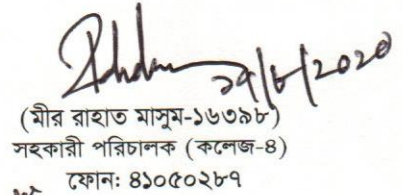 ২৭/৮/২০২০
(মীর রাহাত মাসুম-১৬৩৯৮)
সহকারী পরিচালক (কলেজ-৪)
ফোন: ৪১০৫০২৮৭